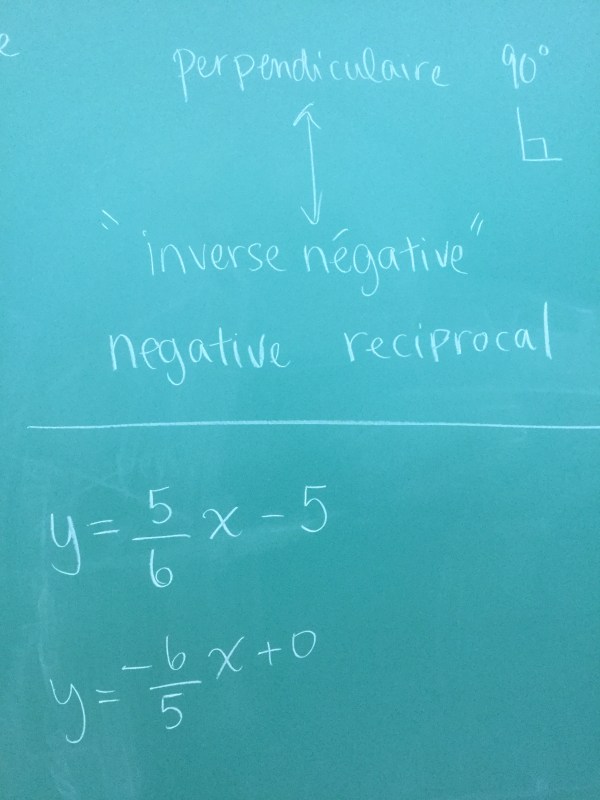 e
perpendiculaire 90°
"inverse négative"
negative reciprocal
y = 5/6 x - 5
y = -6/5 x + 0